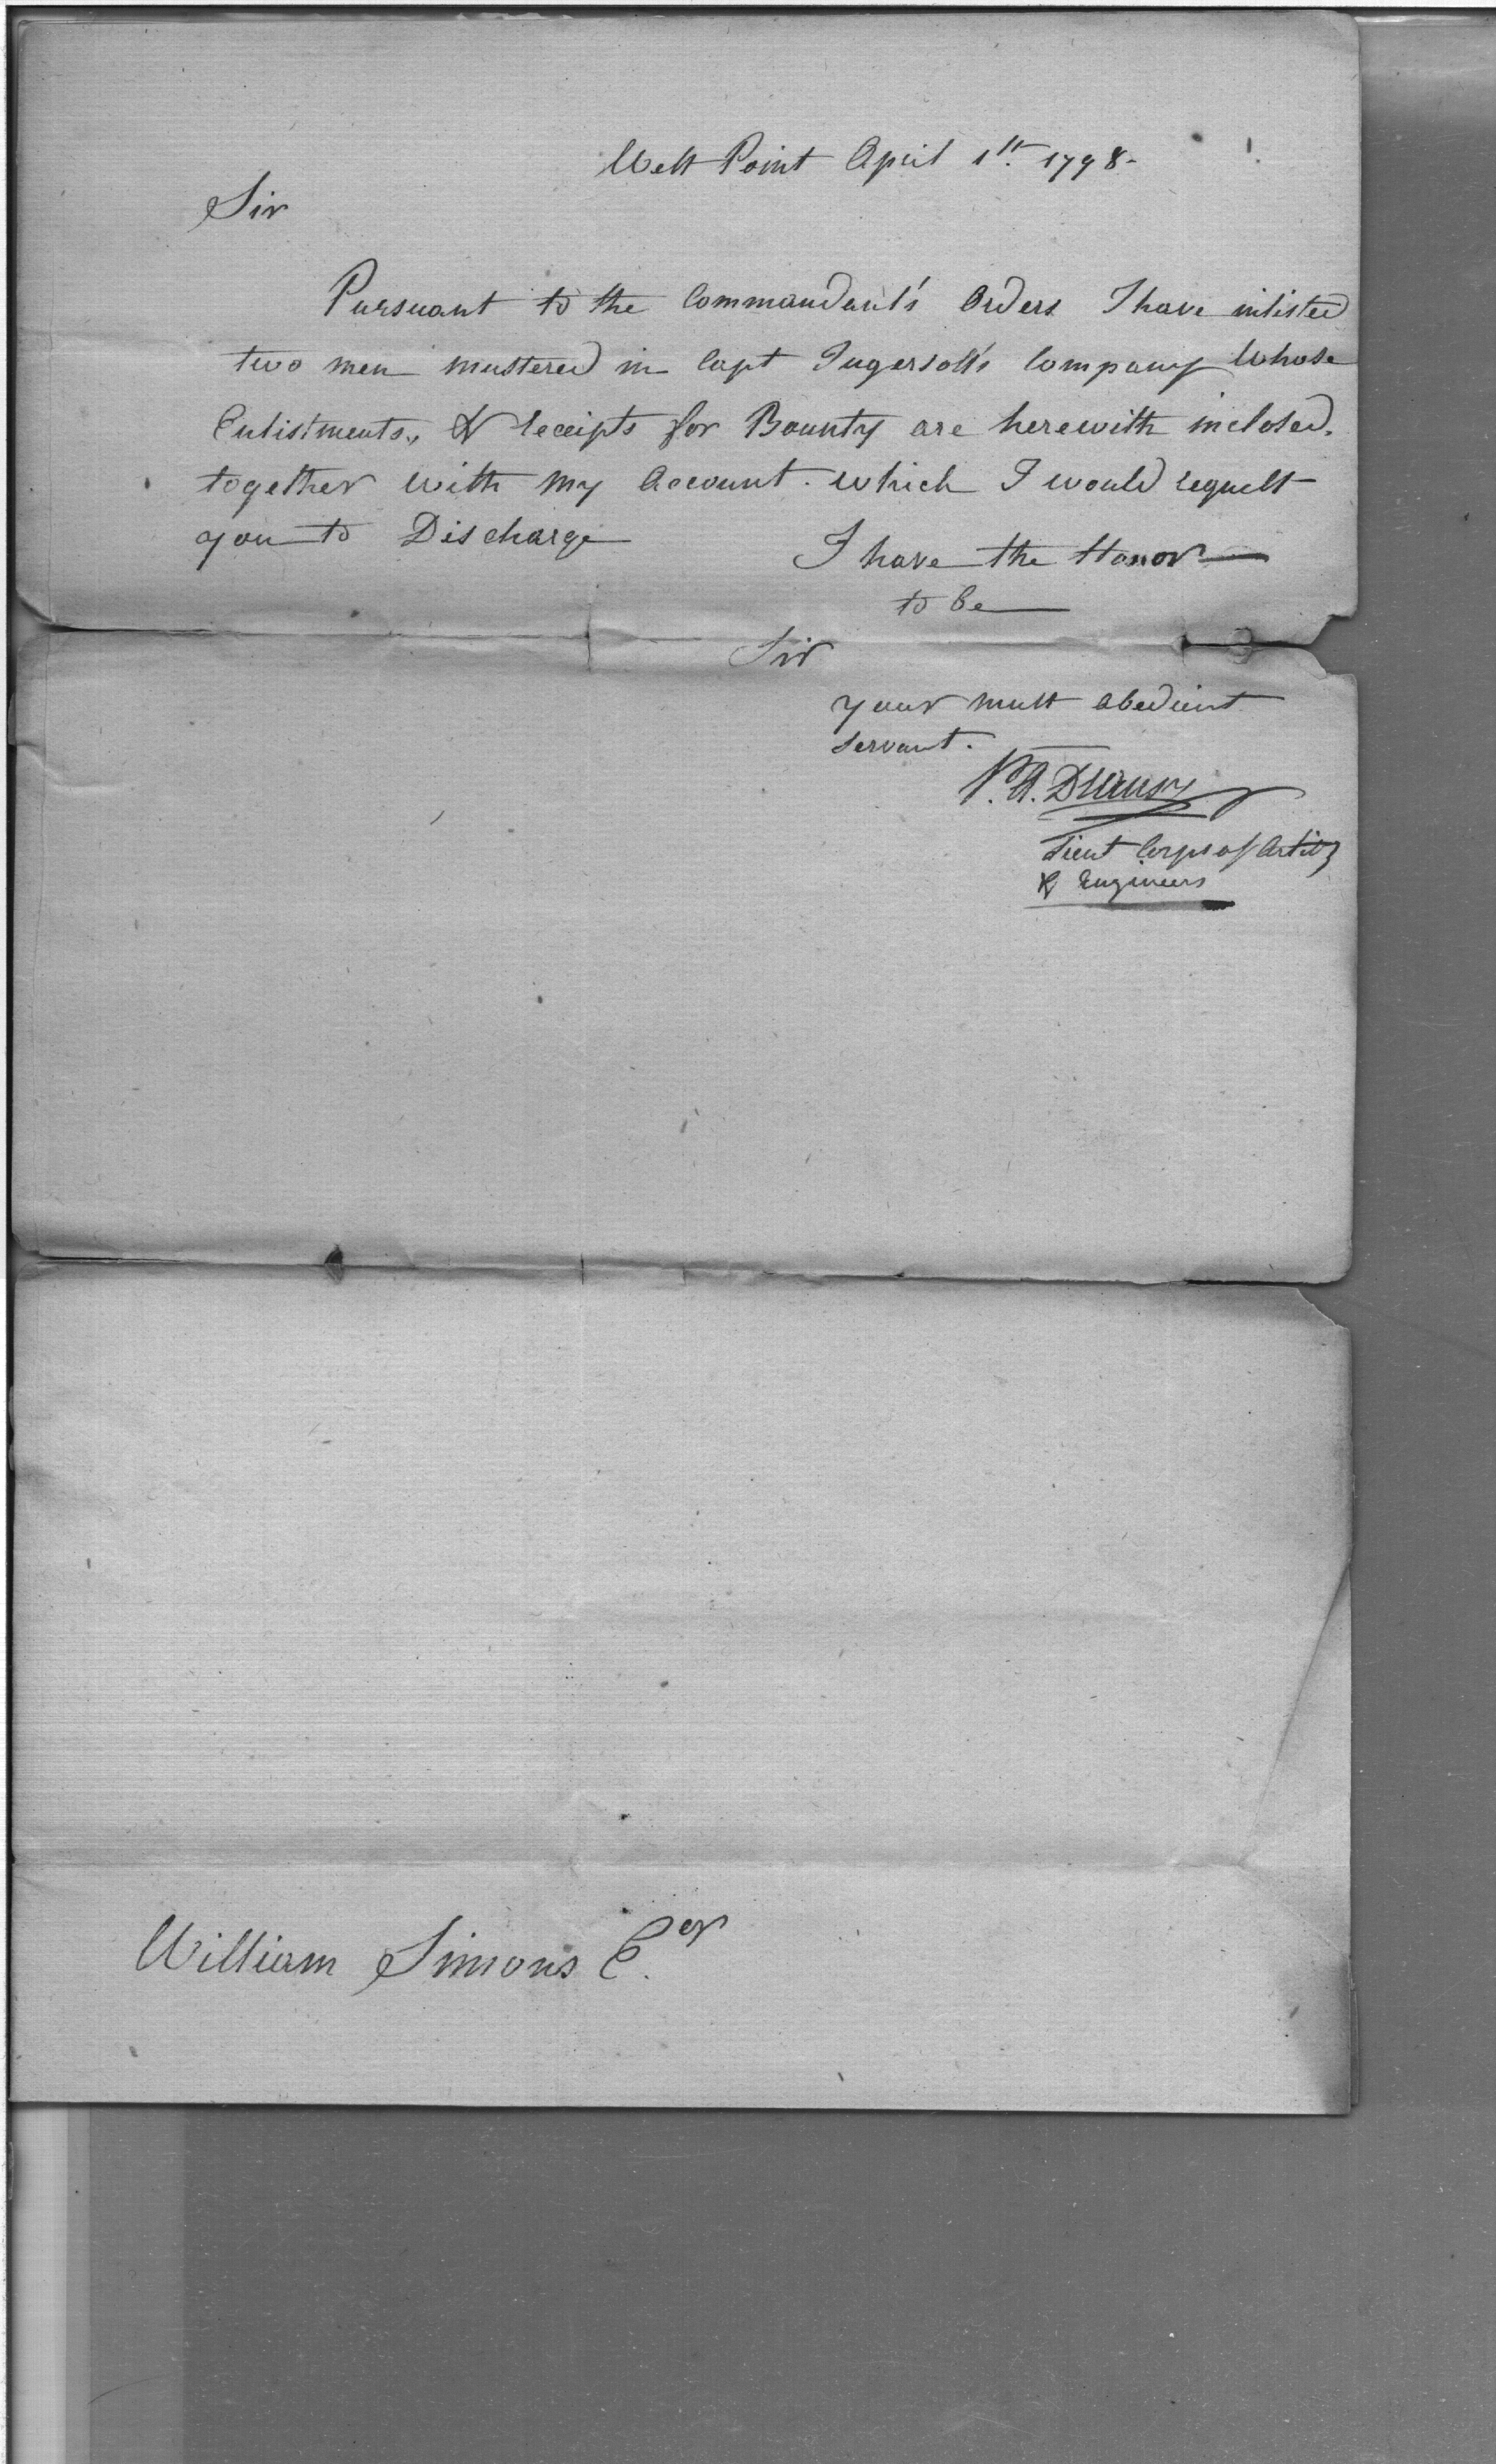 West Point April 1st. 1798-
Sir
Pursuant to the Commandant's Orders I have inlisted
two men mustered in Capt Ingersoll's Company whose
Enlistments, & receipts for Bounty are herewith inclosed.
together with my account. which I would request
you to Discharge
I have the Honor
to be
Sir
your most obedient
servant.
P. A. Dransy
Lieut Corps of Artily
& Engineers
William Simons E.